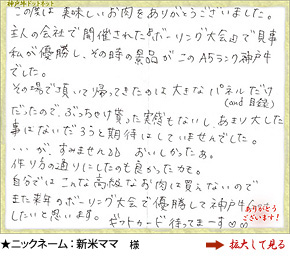 神戸牛ドットネット
この度は美味しいお肉をありがとうございました。
主人の会社で開催されたボーリング大会で見事
私が優勝し、その時の景品がこのA5ランク神戸牛
でした。
その場で頂いて帰ってきたのは大きなパネルだけ
(and 目録)
だったので、ぶっちゃけ貰った実感もないし、あまり大した
事はないだろうと期待はしていませんでした。
・・・が、すみません。 おいしかったぁ。
作り方の通りにしたのも良かったカモ。
自分ではこんな高級なお肉は買えないので
また来年のボーリング大会で優勝して神戸牛
したいと思います。
ギフトカード待ってまーす
ありがとうございます!
★ニックネーム:新米ママ 様
拡大して見る